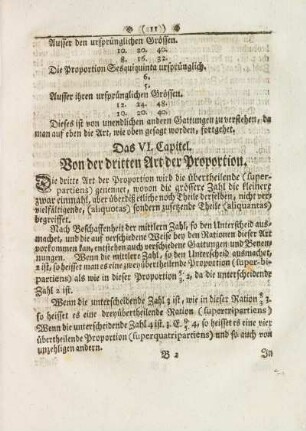 ( 11 )
Ausser den ursprünglichen Grössen.
10. 20. 40.
8. 16. 32.
Die Proportion Sesquiquinta ursprünglich.
6.
5.
Ausser ihren ursprünglichen Grössen.
12. 24. 48.
10. 20. 40.
Dieses ist von unendlichen andern Gattungen zu verstehen, da
man auf eben die Art, wie oben gesagt worden, fortgehet.
Das VI. Capitel.
Von der dritten Art der Proportion.
Die dritte Art der Proportion wird die übertheilende (super-
partiens) genennet, wovon die grössere Zahl die kleinere
zwar einmahl, aber überdiß etliche noch Theile derselben, nicht ver-
vielfältigende, (aliquotas) sondern zusetzende Theile (aliquantas)
begreiffet.
Nach Beschaffenheit der mittlern Zahl, so den Unterscheid aus-
machet, und die auf verschiedene Weise bey den Rationen dieser Art
vorkommen kan, entstehen auch verschiedene Gattungen und Benen-
nungen. Wenn die mittlere Zahl, so den Unterscheid ausmachet,
2 ist, so heisset man es eine zweyübertheilende Proportion (super-bi-
partiens) als wie in dieser Proportion 2, da die unterscheidende
Zahl 2 ist.
Wenn die unterscheidende Zahl 3 ist, wie in dieser Ration 3.
so heisset es eine dreyübertheilende Ration (supertripartiens)
Wenn die unterscheidende Zahl 4 ist, z. E. 4, so heisset es eine vier
übertheilende Proportion (superquatripartiens) und so auch von
unzehligen andern.
B 2 In